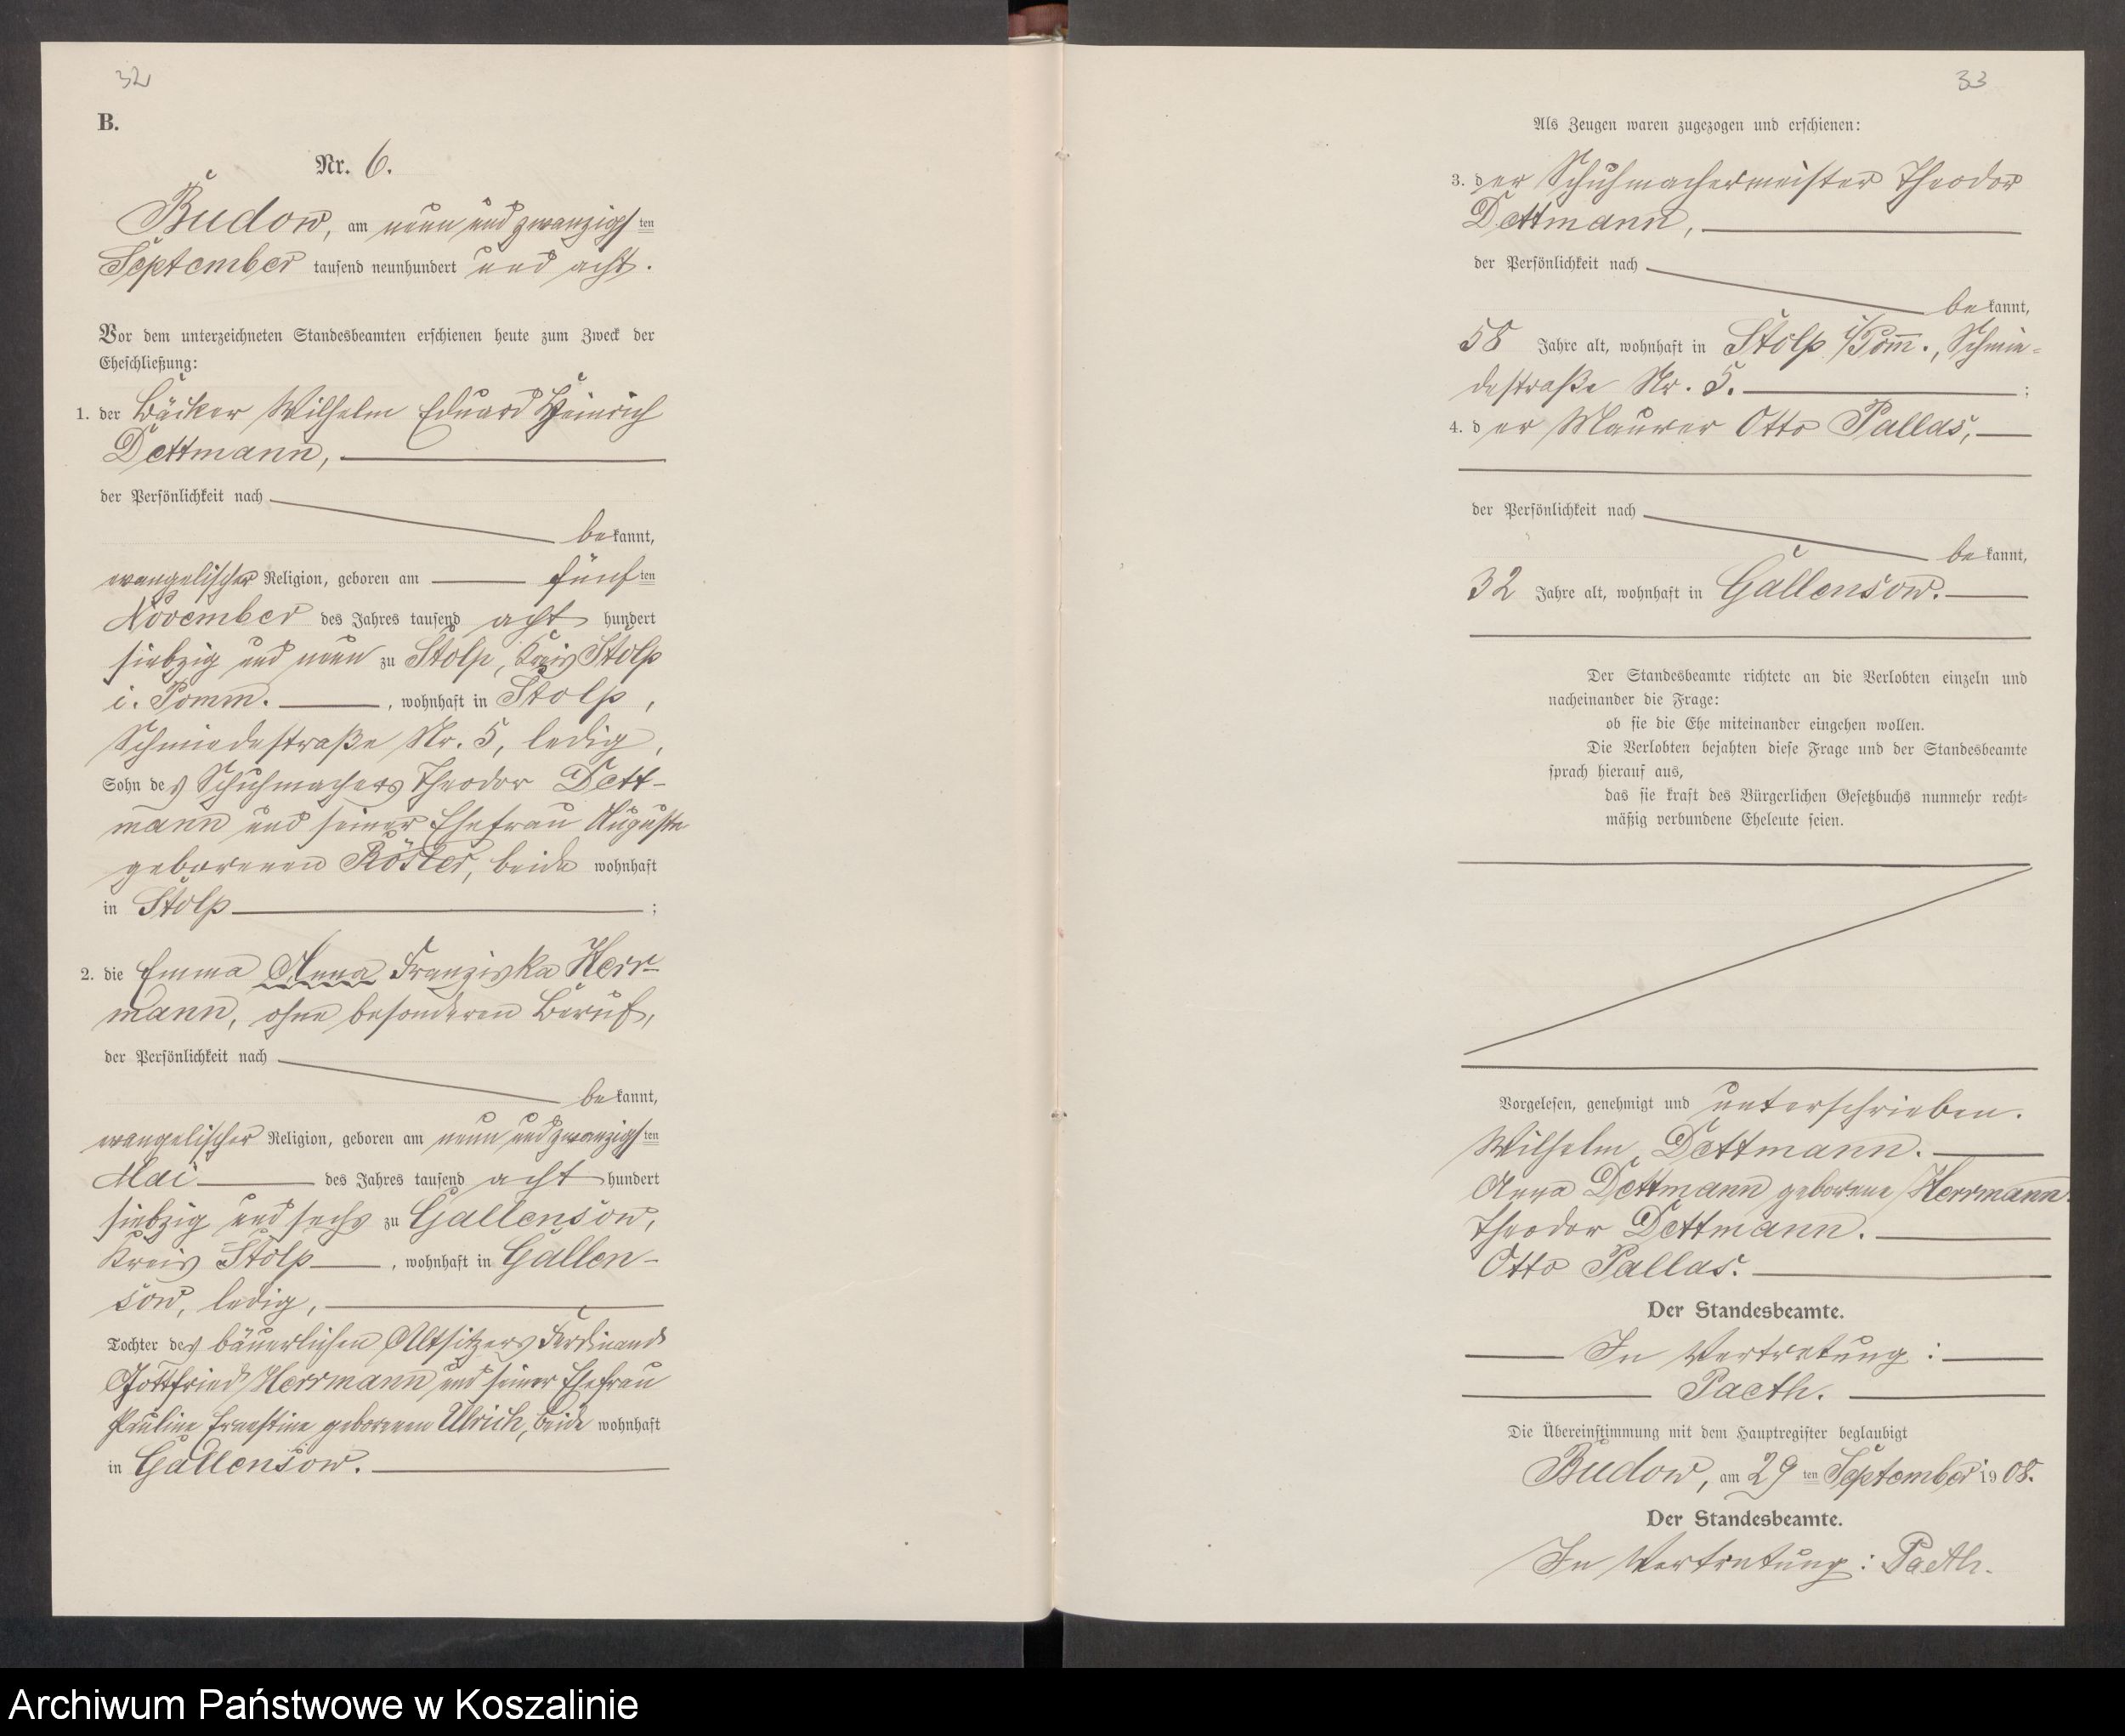 32
B.
Nr. 6.
Budow, am neun und zwanzigsten
September tausend neunhundert und acht.
Vor dem unterzeichneten Standesbeamten erschienen heute zum Zweck der
Eheschließung:
1. der Bäcker Wilhelm Eduard Heinrich
Dettmann,
der Persönlichkeit nach
bekannt,
evangelischer Religion, geboren am fünften
November des Jahres tausend acht hundert
siebzig und neun zu Stolp, Kreis Stolp
i. Pomm. , wohnhaft in Stolp,
Schmiedestraße Nr. 5, ledig,
Sohn des Schuhmachers Theodor Dett-
mann und seiner Ehefrau Auguste
geborenen Röster, beide wohnhaft
in Stolp ;
2. die Emma Anna Franziska Herr-
mann, ohne besonderen Beruf,
der Persönlichkeit nach
bekannt,
evangelischer Religion, geboren am neun und zwanzigsten
Mai des Jahres tausend acht hundert
siebzig und sechs zu Gallensow,
Kreis Stolp , wohnhaft in Gallen-
sow, ledig,
Tochter des bäuerlichen Altsitzers Ferdinand
Gottfried Herrmann und seiner Ehefrau
Pauline Ernestine geborenen Ulrich, beide wohnhaft
in Gallensow.
33
Als Zeugen waren zugezogen und erschienen:
3. der Schuhmachermeister Theodor
Dettmann,
der Persönlichkeit nach
bekannt,
58 Jahre alt, wohnhaft in Stolp i/Pom̅., Schmie-
destraße Nr. 5. ;
4. der Maurer Otto Pallas,
der Persönlichkeit nach
bekannt,
32 Jahre alt, wohnhaft in Gallensow.
Der Standesbeamte richtete an die Verlobten einzeln und
nacheinander die Frage:
ob sie die Ehe miteinander eingehen wollen.
Die Verlobten bejahten diese Frage und der Standesbeamte
sprach hierauf aus,
das sie kraft des Bürgerlichen Gesetzbuchs nunmehr recht-
mäßig verbundene Eheleute seien.
Vorgelesen, genehmigt und unterschrieben.
Wilhelm Dettmann.
Anna Dettmann geborene Herrmann.
Theodor Dettmann.
Otto Pallas.
Der Standesbeamte.
In Vertretung:
Paeth.
Die Übereinstimmung mit dem Hauptregister beglaubigt
Budow, am 29 ten September 1908.
Der Standesbeamte.
In Vertretung: Paeth.
Archiwum Państwowe w Koszalinie